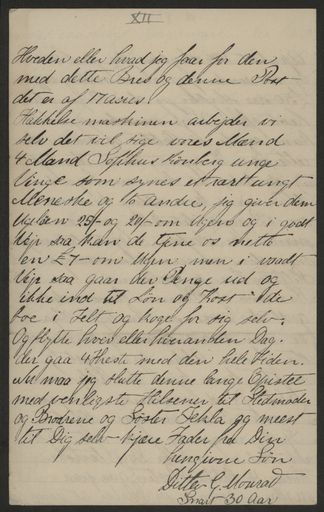 XII
Hveden eller hvad jeg faar for den
med dette Brev og denne Post
det er af 17 acres.
Hakkelse maskinen arbejder vi
selv det vil sige vores Mænd
4 Mand Sophus Kronberg unge
Vinge som synes et rart ungt
Menneske og to andre, jeg giver dem
25/- og 20/- om Ugen og i godt
Vejr saa kan de tjene os netto
en £7- om Ugen, men i vaadt
Vejr saa gaar der Penge ud og
ikke ind til Løn og Kost - de
boe i Telt og koge for sig selv.
Og flytte hver eller hveranden Dag.
der gaa 4 Heste med den hele Tiden.
Nu maa jeg slutte denne lange Epistel
med venligste Hilsener til Stedmoder
og Brødrene og Søster Thekla og meest
til Dig selv kjære Fader fra Din
hengivne Søn
Ditlev G. Monrad
Snart 30 Aar